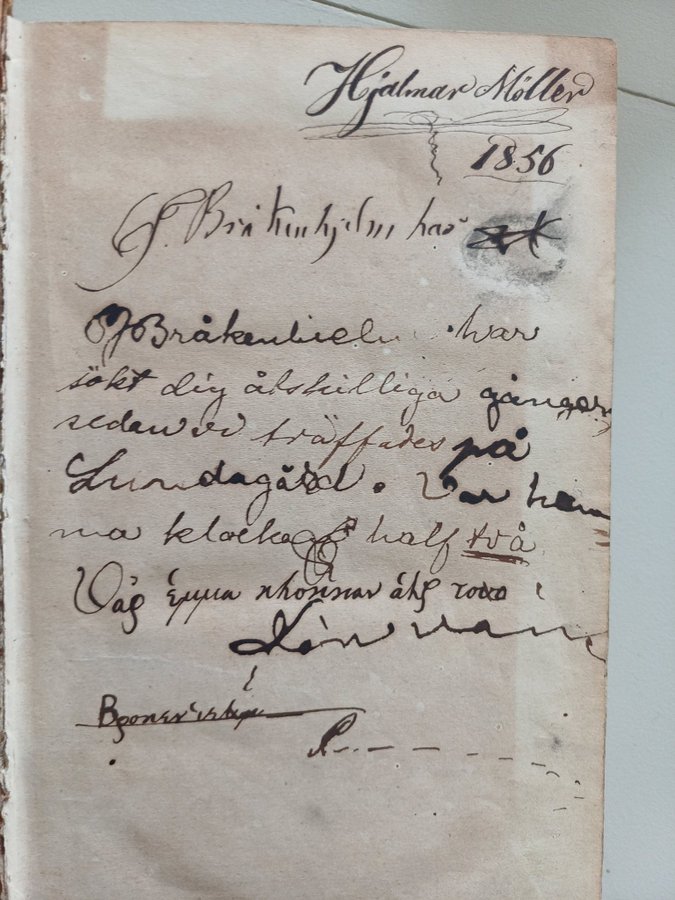 Hjalmar Möller
1856
F. Bråkenhjelm har
F Bråkenhielm har
sökt dig åtskilliga gånger
sedan vi träffades på
Lundagård. Var hem
ma klockan half två
Vάρ έμμα κλοκκαν άλφ
Din vän